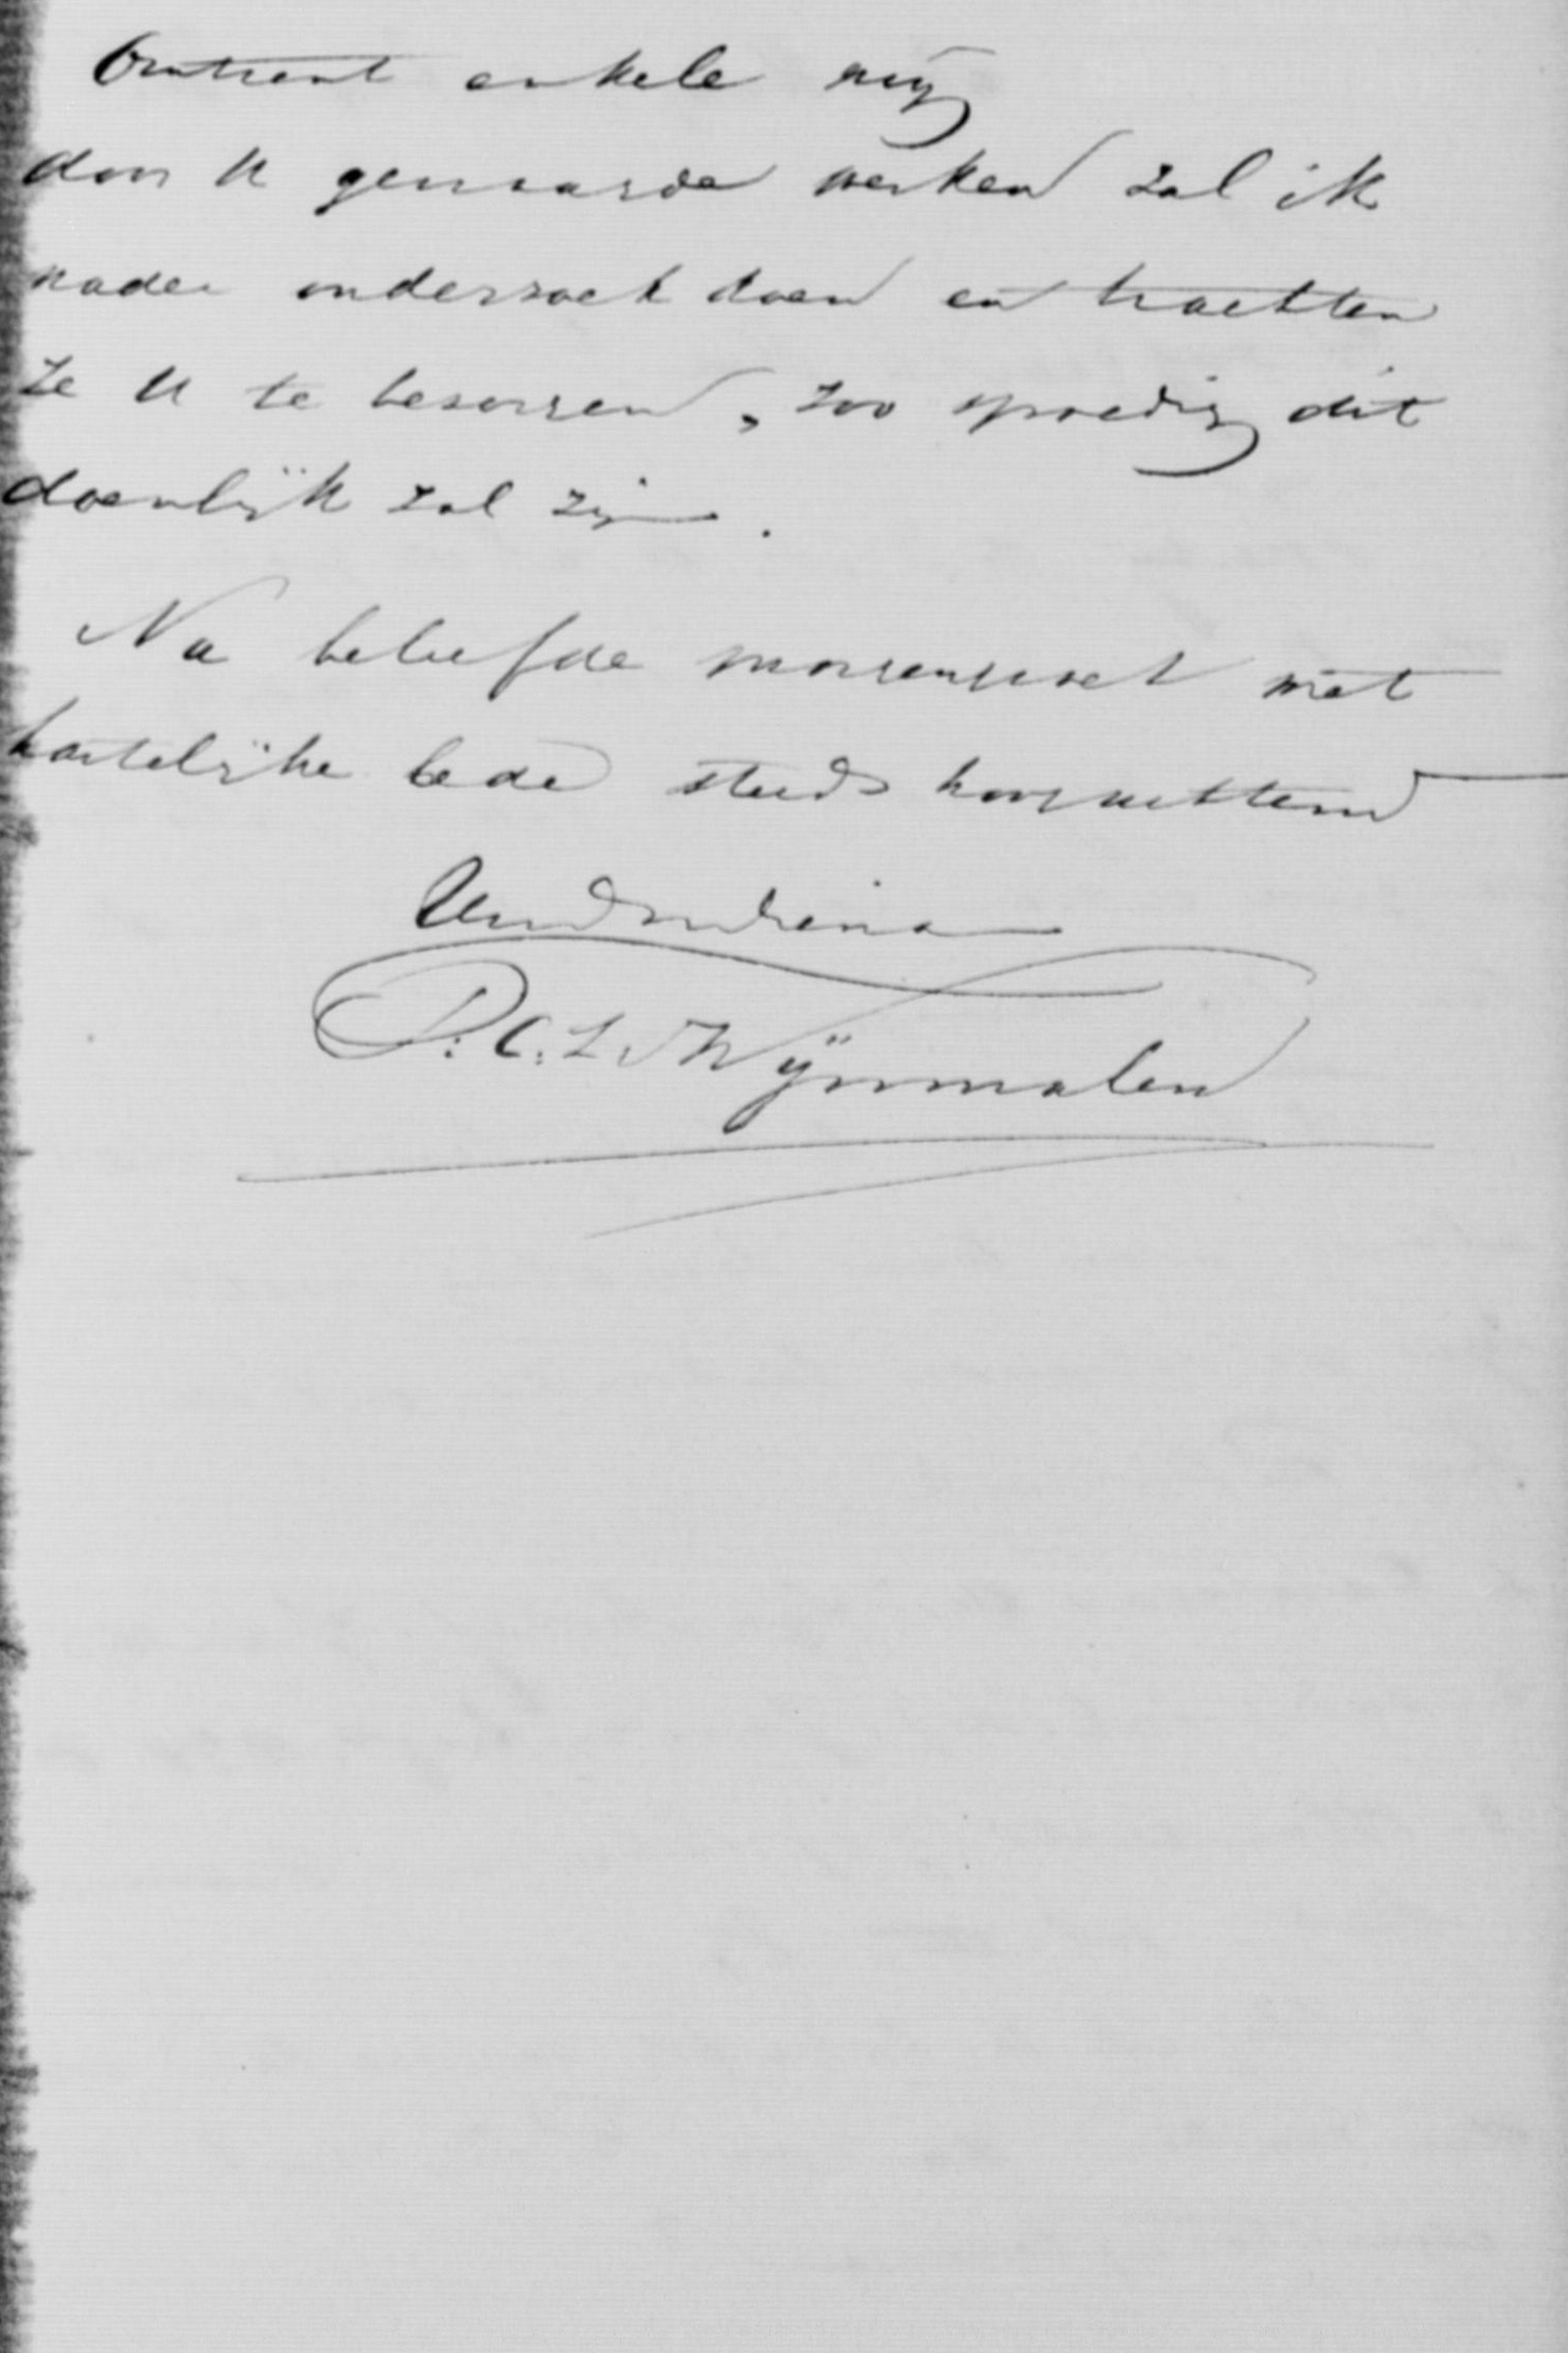 Omtrent enkele mij
door U genaamde werken zal ik
nader onderzoek doen en trachten
ze U te bezorgen, zoo spoedig dit
doenlijk zal zijn.
Na beleefde morgengroet met
hartelijke bede steeds hoogachtend
Uw Dw dienaar
P. C. L. Wijnmalen